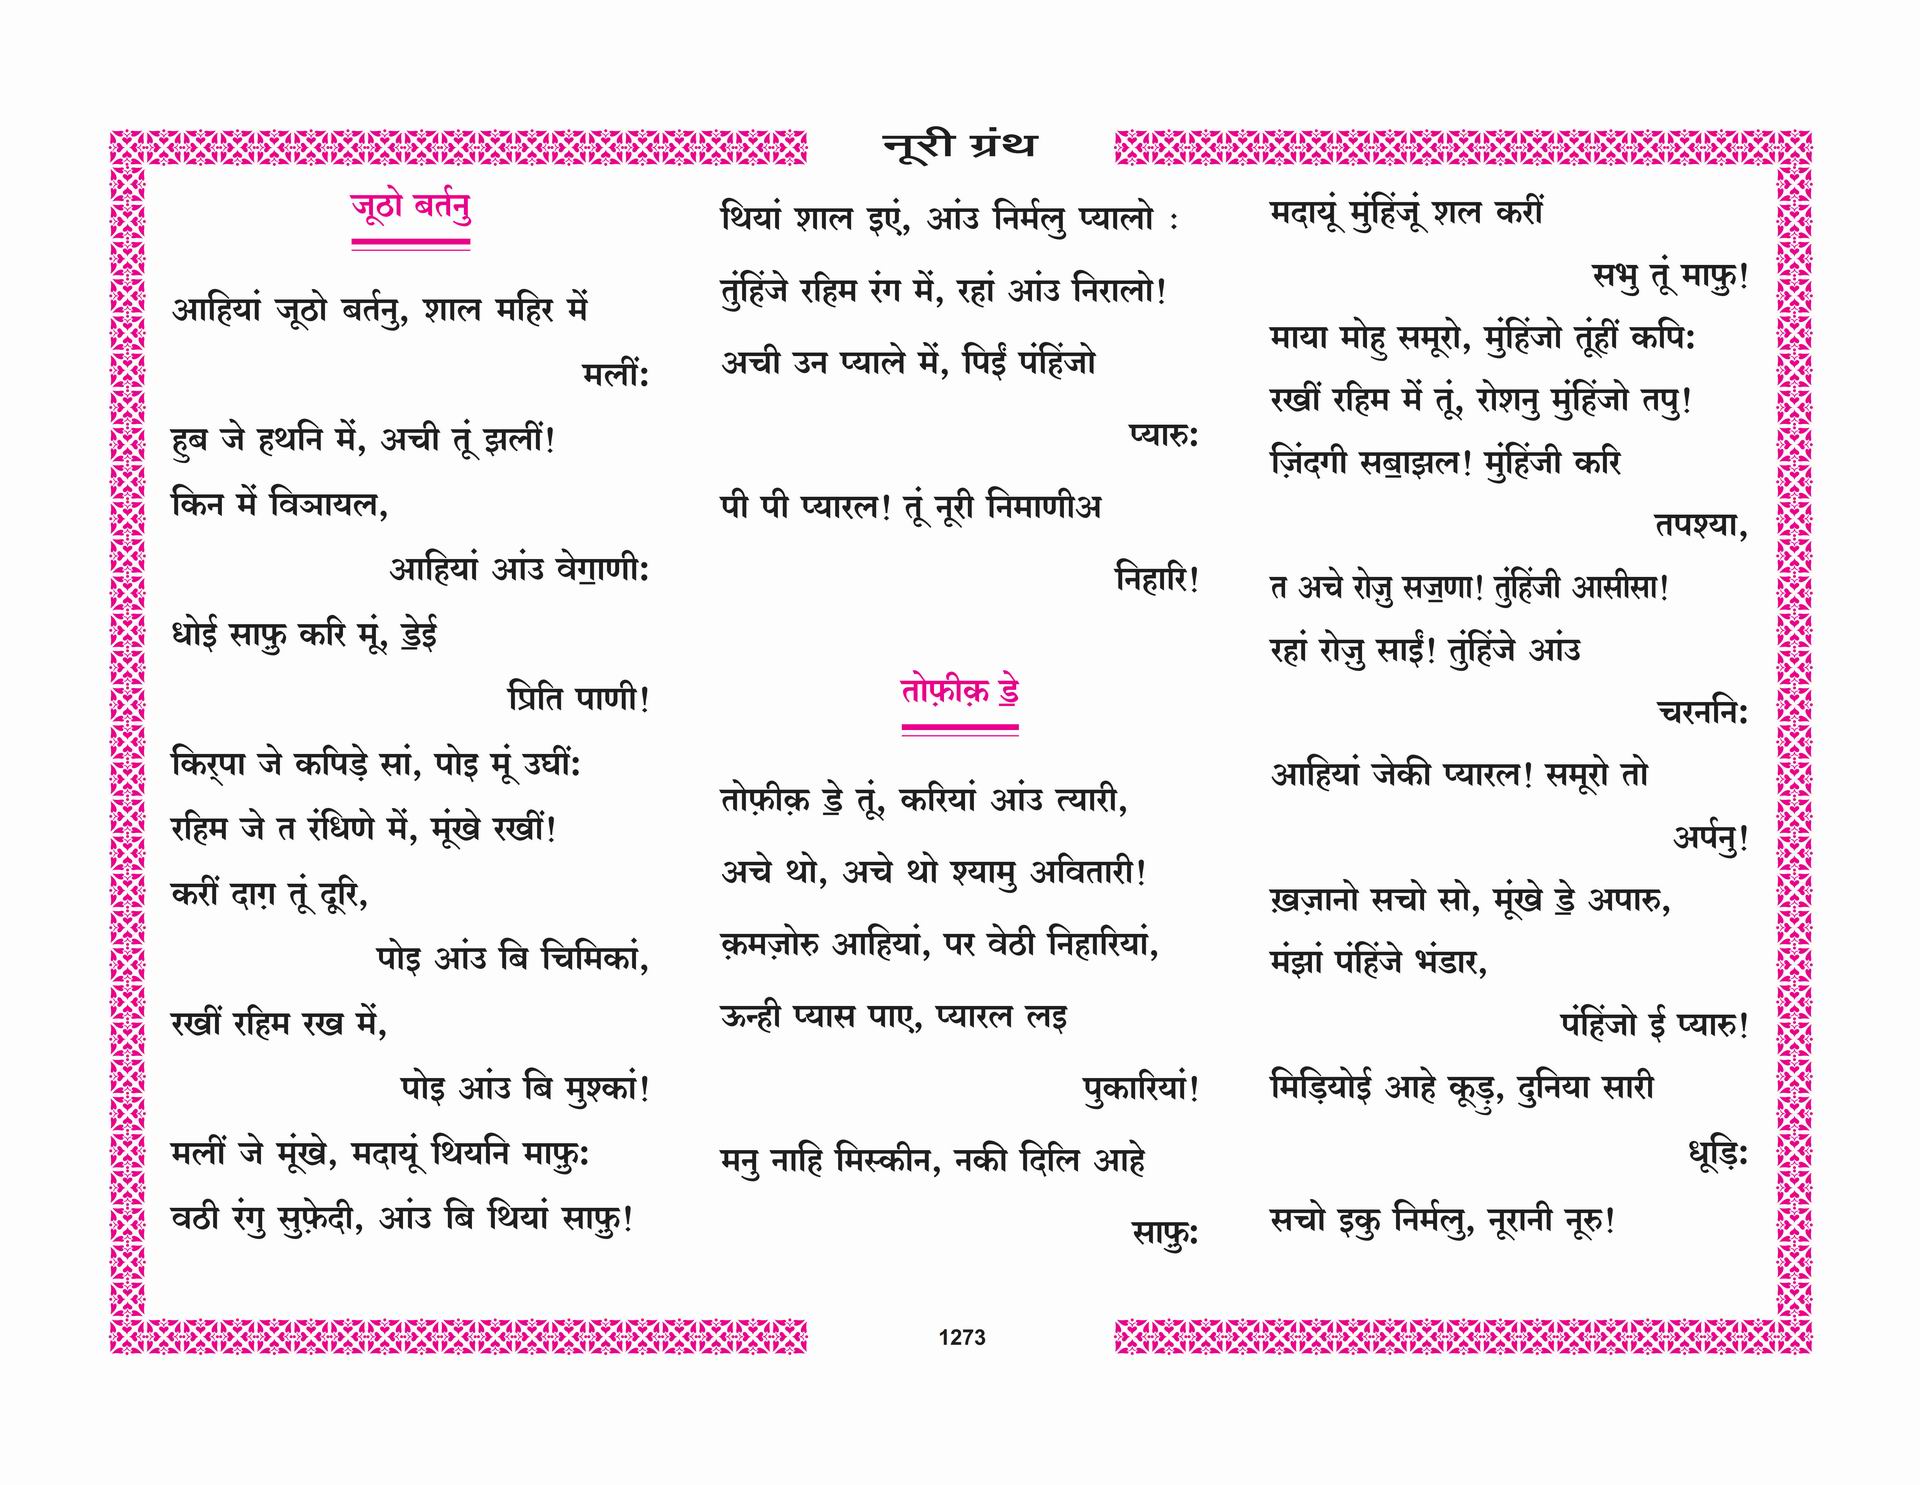 नूरी ग्रंथ
जूठो बर्तनु
आहियां जूठो बर्तनु, शाल महिर में
मलीं:
हुब जे हथनि में, अची तूं झलीं!
किन में विञायल,
आहियां आंउ वेग॒ाणी:
धोई साफ़ु करि मूं, ड॒ेई
प्रिति पाणी!
किर्‌पा जे कपिड़े सां, पोइ मूं उघीं:
रहिम जे त रंधिणे में, मूंखे रखीं!
करीं दाग़ तूं दूरि,
पोइ आंउ बि चिमिकां,
रखीं रहिम रख में,
पोइ आंउ बि मुश्कां!
मलीं जे मूंखे, मदायूं थियनि माफ़ु:
वठी रंगु सुफ़ेदी, आंउ बि थियां साफ़ु!
थियां शाल इएं, आंउ निर्मलु प्यालो :
तुंहिंजे रहिम रंग में, रहां आंउ निरालो!
अची उन प्याले में, पिईं पंहिंजो
प्यारु:
पी पी प्यारल! तूं नूरी निमाणीअ
निहारि!
तोफ़ीक़ ड॒े
तोफ़ीक़ ड॒े तूं, करियां आंउ त्यारी,
अचे थो, अचे थो श्यामु अवितारी!
क़मज़ोरु आहियां, पर वेठी निहारियां,
ऊन्ही प्यास पाए, प्यारल लइ
पुकारियां!
मनु नाहि मिस्कीन, नकी दिलि आहे
साफ़ु:
मदायूं मुंहिंजूं शल करीं
सभु तूं माफ़ु!
माया मोहु समूरो, मुंहिंजो तूंहीं कपि:
रखीं रहिम में तूं, रोशनु मुंहिंजो तपु!
ज़िंदगी सब॒ाझल! मुंहिंजी करि
तपश्या,
त अचे रोज़ु सज॒णा! तुंहिंजी आसीसा!
रहां रोज़ु साईं! तुंहिंजे आंउ
चरननि:
आहियां जेकी प्यारल! समूरो तो
अर्पनु!
ख़ज़ानो सचो सो, मूंखे ड॒े अपारु,
मंझां पंहिंजे भंडार,
पंहिंजो ई प्यारु!
मिड़ियोई आहे कूड़ु, दुनिया सारी
धूड़ि:
सचो इकु निर्मलु, नूरानी नूरु!
1273